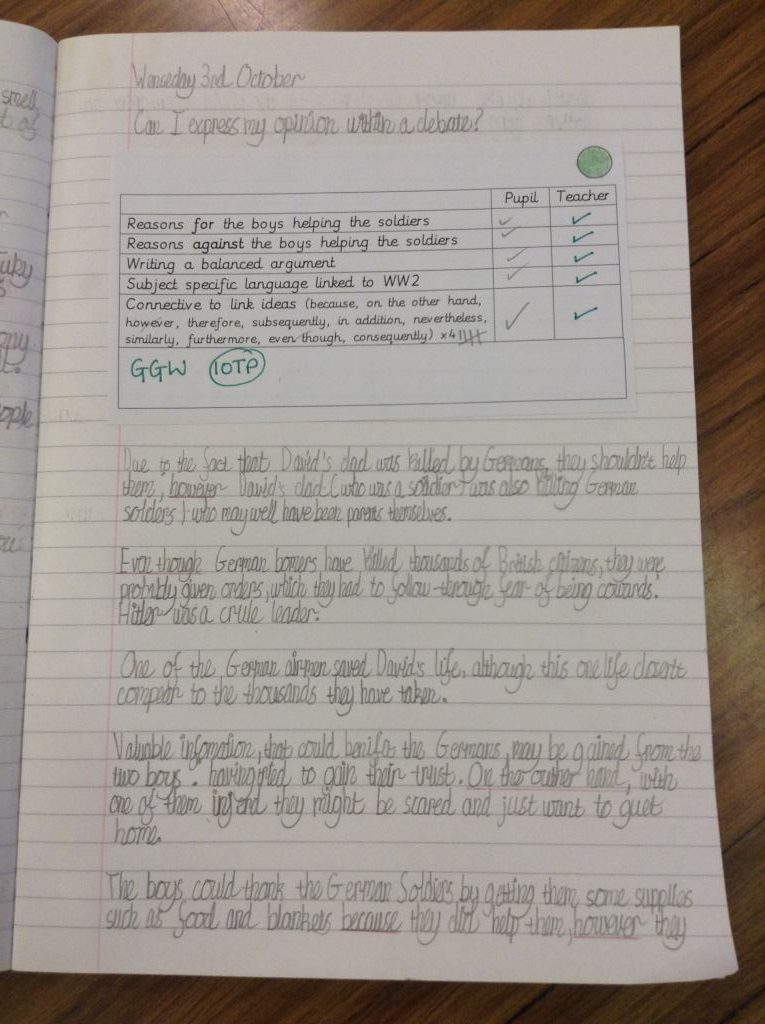 smell
t of
Wenseday 3rd October
Can I express my opinion within a debate?
Pupil Teacher
Reasons for the boys helping the soldiers ✓ ✓
Reasons against the boys helping the soldiers ✓ ✓
Writing a balanced argument ✓ ✓
Subject specific language linked to WW2 ✓ ✓
Connective to link ideas (because, on the other hand,
however, therefore, subsequently, in addition, nevertheless, ✓ ✓
similarly, furthermore, even though, consequently) x4
GGW IOTP
Due to the fact that David's dad was killed by Germans, they shouldn't help
them; however David's dad (who was a soldier) was also killing German
solders) who may well have been parents themselves.
Even though German bomers have killed thousands of British citizens, they were
probably given orders, which they had to follow-through fear of being cowards.
Hitler was a crule leader.
One of the German airmen saved David's life, although this one life doesn't
compeah to the thousands they have taken.
Valuable infomation, that could benifit the Germans, may be gained from the
two boys. having tried to gain their trust. On the outher hand, with
one of them injerd they might be scared and just want to guet
home.
The boys could thank the German Soldiers by getting them some supplies
such as food and blankets because they did help them, however they